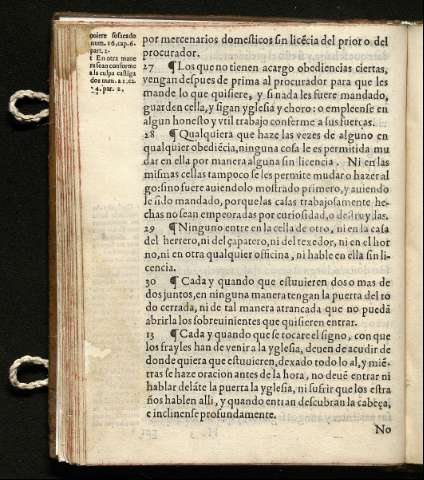 quiere sosiego
num. 16. cap. 6.
part. 2.
t En otra mane
ra sean conforme
a la culpa castiga
dos num. 21. ca.
4. par. 2.
por mercenarios domesticos sin licẽcia del prior o del
procurador.
27 ¶ Los que no tienen acargo obediencias ciertas,
vengan despues de prima al procurador para que les
mande lo que quisiere, y si nada les fuere mandado,
guarden cella, y sigan yglesia y choro: o empleense en
algun honesto y vtil trabajo conforme a sus fuerças.
28 ¶ Qualquiera que haze las vezes de alguno en
qualquier obediẽcia, ninguna cosa le es permitida mu
dar en ella por manera alguna sin licencia. Ni en las
mismas cellas tampoco se les permite mudar o hazer al
go: sino fuere auiendolo mostrado primero, y auiendo
le sido mandado, porque las casas trabajosamente he-
chas no sean empeoradas por curiosidad, o destruydas.
29 ¶ Ninguno entre en la cella de otro, ni en la casa
del herrero, ni del çapatero, ni del texedor, ni en el hor
no, ni en otra qualquier officina, ni hable en ella sin li-
cencia.
30 ¶ Cada y quando que estuuieren dos o mas de
dos juntos, en ninguna manera tengan la puerta del to
do cerrada, ni de tal manera atrancada que no puedã
abrirla los sobreuinientes que quisieren entrar.
13 ¶ Cada y quando que se tocare el signo, con que
los frayles han de venir a la yglesia, deuen de acudir de
donde quiera que estuuieren, dexado todo lo al, y miẽ-
tras se haze oracion antes de la hora, no deuẽ entrar ni
hablar delãte la puerta la yglesia, ni sufrir que los estra
ños hablen alli, y quando entran descubran la cabeça,
e inclinense profundamente.
No